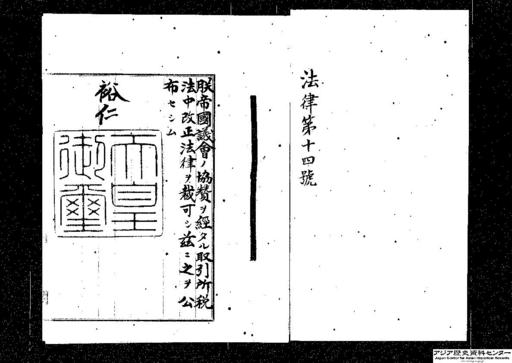 法律第十四號
朕帝國議會ノ協贊ヲ經タル取引所稅
法中改正法律ヲ裁可シ茲ニ之ヲ公
布セシム
裕仁
天皇
御璽
アジア歴史資料センター
Japan Center for Asian Historical Records